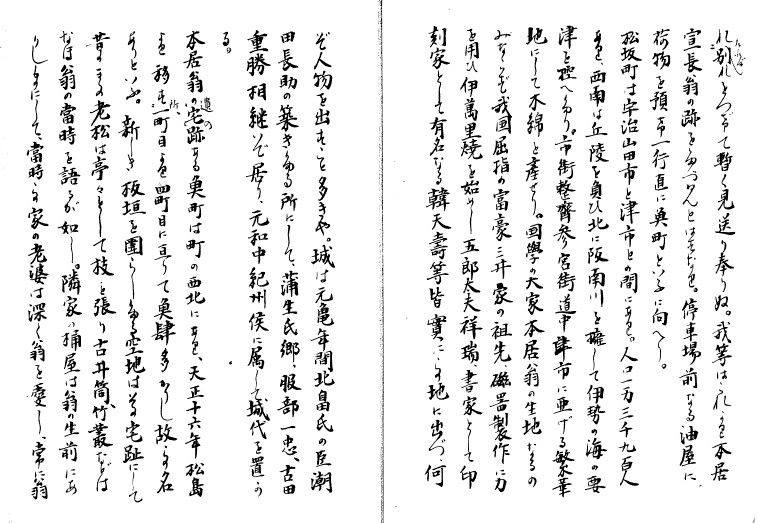 れ別れとつげて暫く見送り奉りぬ。我等はこれより本居
宣長翁の跡をたづねんとはするなり。停車場前なる油屋に
荷物を預け一行直に魚町といふに向へり。
松坂町は宇治山田市と津市との間にあり。人口一万三千九百人
あり、西南は丘陵を負ひ北に阪南川を擁して伊勢の海の要
津を控へたり。市街整齊参宮街道中津市に亜げる繁華
地にして木綿を産せり。国學の大家本居翁の生地なるの
みならず我国屈指の富豪三井家の祖先、磁器製作に力
を用ひ伊萬里焼を始めし五郎太夫祥瑞、書家として印
刻家として有名なる韓天壽等皆實にこの地に出づ、何
ぞ人物を出すこと多きや。城は元亀年間北畠氏の臣潮
田長助の築きたる所にして、蒲生氏郷、服部一忠、古田
重勝相継いで居り、元和中紀州侯に属して城代を置か
る。
本居翁の遺の宅跡なる魚町は町の西北にあり、天正十六年松島
より移す所、三町目より四町目に亘りて魚肆多かりし故この名
ありといふ。新しき板垣を圍らしたる空地は乃ち宅趾にして
昔ままの老松は亭々として枝を張り古井筒、竹叢などは
なほ翁の當時を語るが如し。隣家の桶屋は翁の生前にあ
りしままにして、當時この家の老婆は深く翁を愛し、常に翁